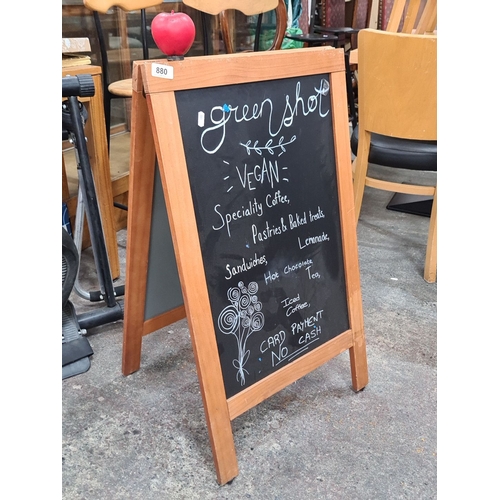 880
green shot
VEGAN
Speciality Coffee,
Pastries & Baked treats
Sandwiches, Lemonade,
Hot Chocolate
Tea,
Iced
Coffee,
CARD PAYMENT
NO CASH